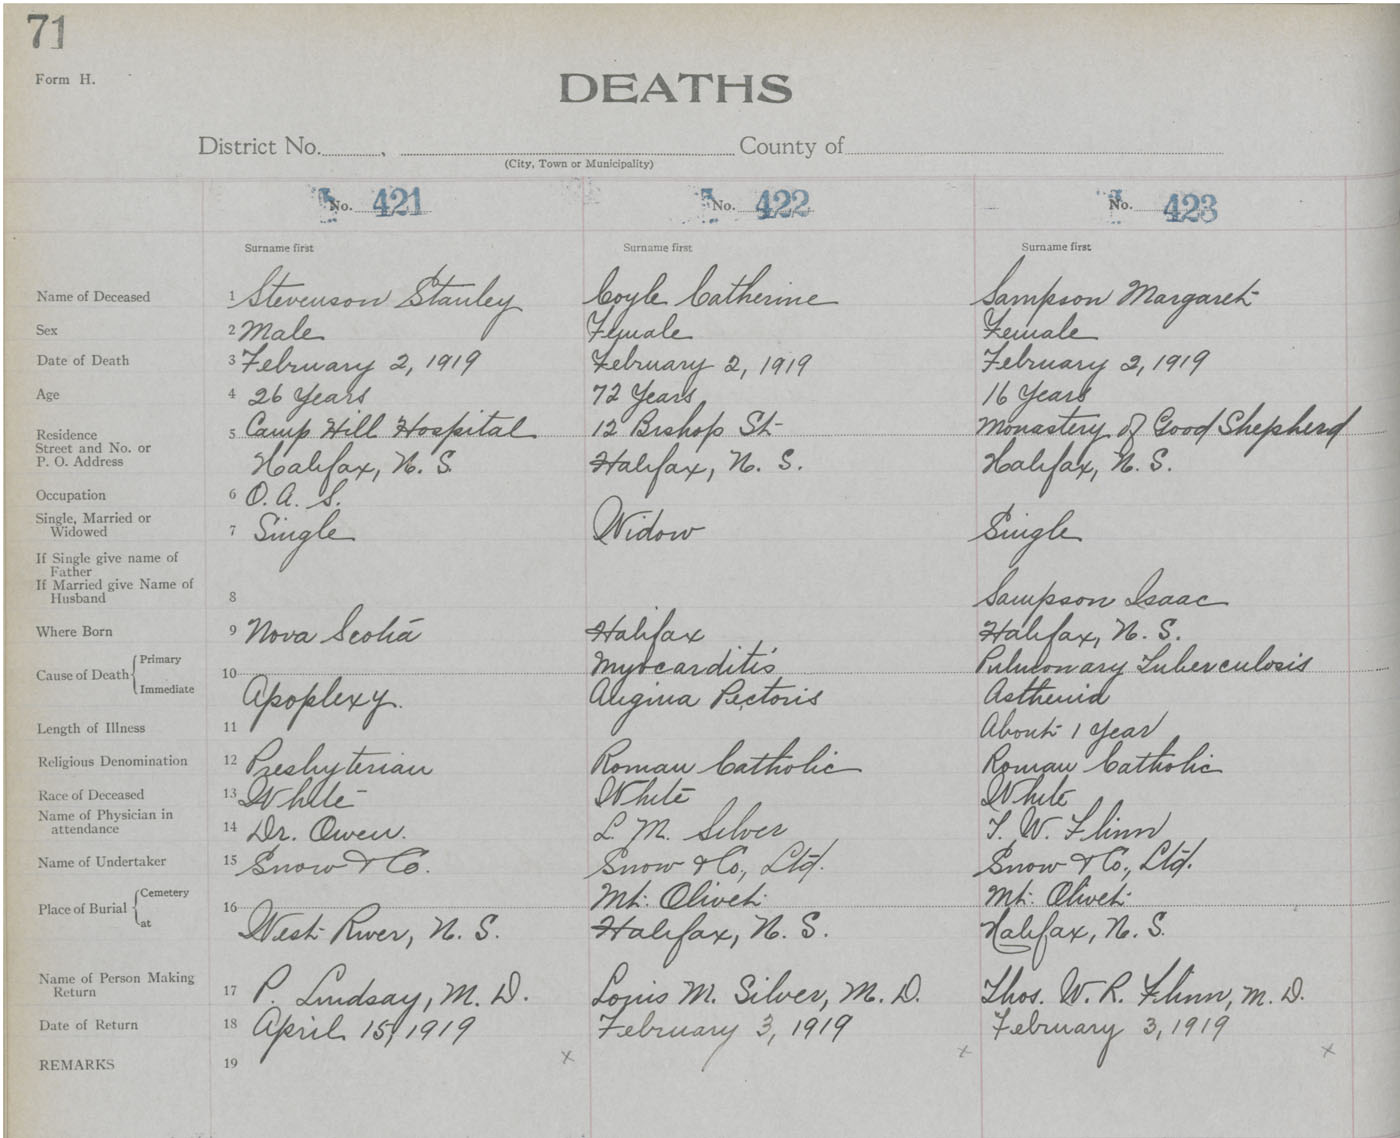 71
Form H.
DEATHS
District No. , County of
(City, Town or Municipality)
No. 421 No. 422 No. 423
Surname first Surname first Surname first
Name of Deceased 1 Stevenson Stanley Coyle Catherine Sampson Margaret
Sex 2 Male Female Female
Date of Death 3 February 2, 1919 February 2, 1919 February 2, 1919
Age 4 26 Years 72 Years 16 Years
Residence Street and No. or P. O. Address 5 Camp Hill Hospital 12 Bishop St Monastery of Good Shepherd
Halifax, N. S. Halifax, N. S. Halifax, N. S.
Occupation 6 O. A. S.
Single, Married or Widowed 7 Single Widow Single
If Single give name of Father
If Married give Name of Husband 8 Sampson Isaac
Where Born 9 Nova Scotia Halifax Halifax, N. S.
Cause of Death Primary 10 Myocarditis Pulmonary Tuberculosis
Immediate Apoplexy. Angina Pectoris Asthenia
Length of Illness 11 About 1 Year
Religious Denomination 12 Presbyterian Roman Catholic Roman Catholic
Race of Deceased 13 White White White
Name of Physician in attendance 14 Dr. Owen. L. M. Silver T. W. Flinn
Name of Undertaker 15 Snow & Co. Snow & Co., Ltd. Snow & Co., Ltd.
Place of Burial Cemetery 16 Mt. Olivet Mt. Olivet
at West River, N. S. Halifax, N. S. Halifax, N. S.
Name of Person Making Return 17 P. Lindsay, M. D. Louis M. Silver, M. D. Thos. W. R. Flinn, M. D.
Date of Return 18 April 15, 1919 February 3, 1919 February 3, 1919
REMARKS 19 x x x